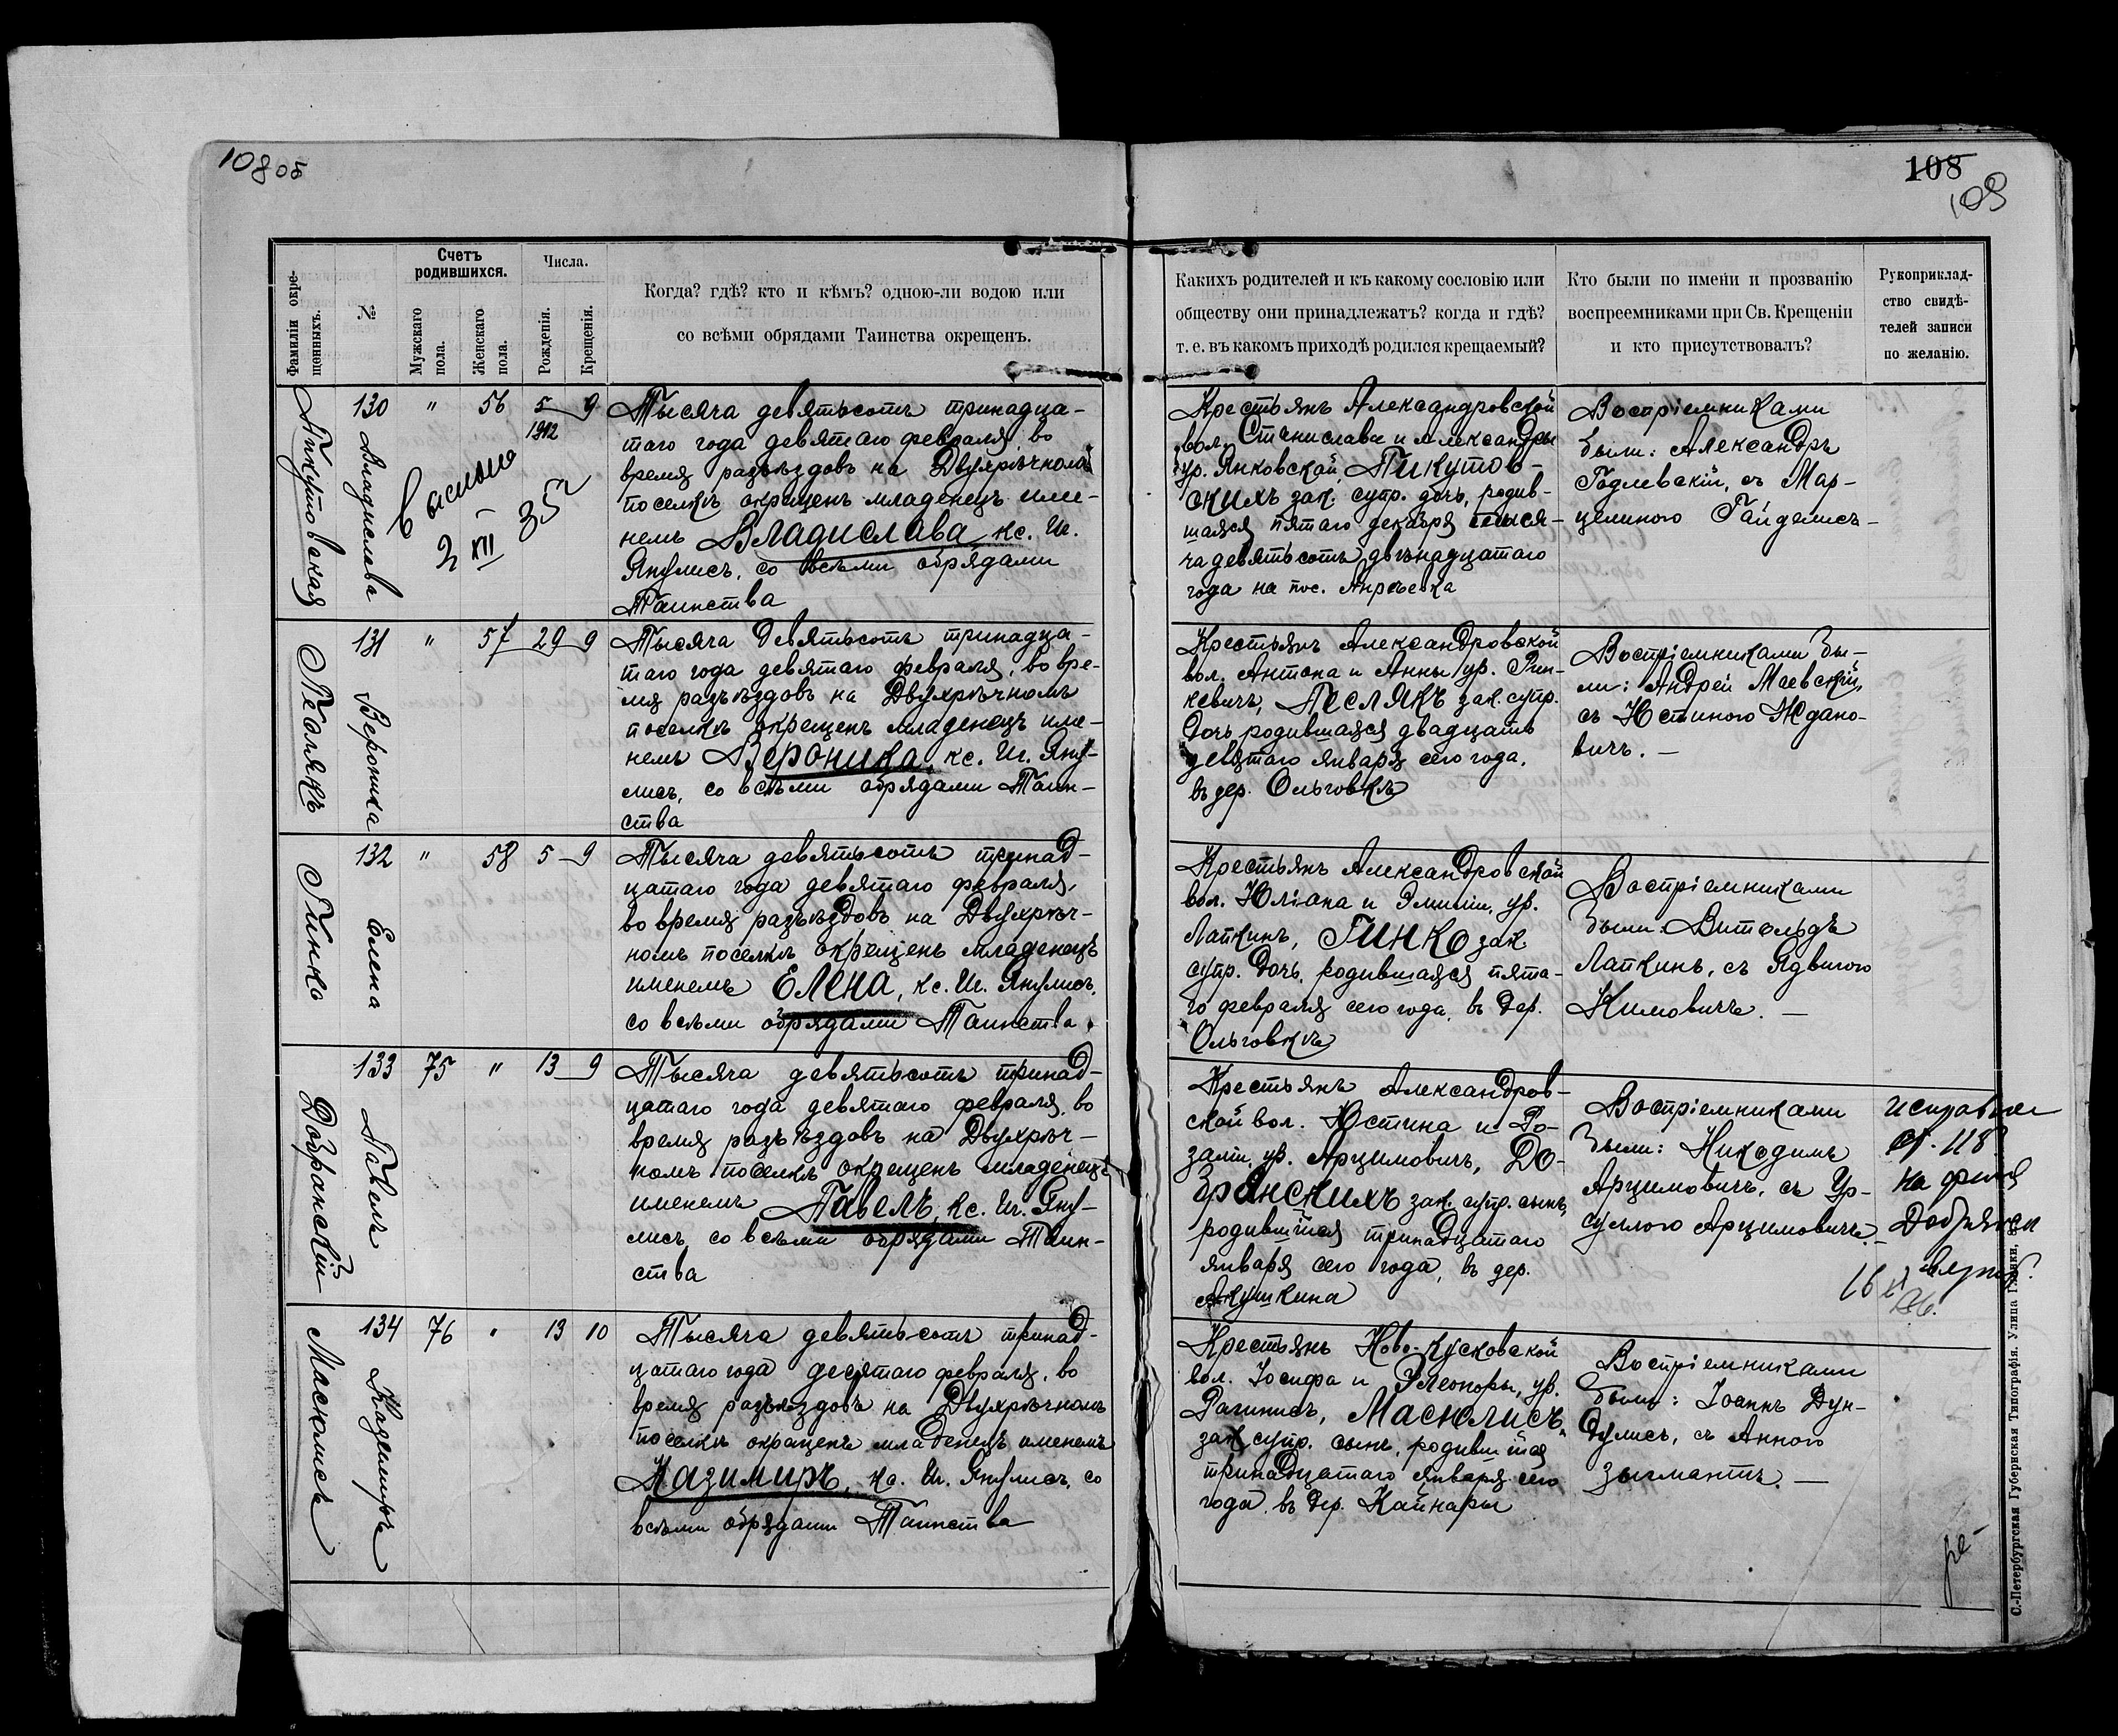 108 об
108
109
Фамиліи окре-
щенныхъ.
№
Счетъ
родившихся.
Мужскаго
пола.
Женскаго
пола.
Числа.
Рожденія.
Крещенія.
Когда? гдѣ? кто и кѣмъ? одною-ли водою или
со всѣми обрядами Таинства окрещенъ.
Какихъ родителей и къ какому сословію или
обществу они принадлежатъ? когда и гдѣ?
т. е. въ какомъ приходѣ родился крещаемый?
Кто были по имени и прозванію
воспреемниками при Св. Крещеніи
и кто присутствовалъ?
Рукоприклад-
ство свидѣ-
телей записи
по желанію.
Пикутовская
130 Владислава
" 56 5 9
1912
2 XII 35
Тысяча девятьсотъ тринадца-
таго года девятаго февраля, во
время разъѣздовъ на Двухрѣчномъ
поселкѣ окрещенъ младенецъ име-
немъ Владислава, кс. Іп.
Янулисъ, со всѣми обрядами
Таинства
Крестьянъ Александровской
вол. Станислава и Александры
ур. Янковской, Пикутов-
скихъ зак. супр. дочь, родив-
шаяся пятаго декабря тыся-
ча девятьсотъ двѣнадцатаго
года на пос.
Воспріемниками
были: Александръ
Годлевскій, съ Мар-
целиною Гайделисъ
Песлякъ
131 Вероника
" 57 29 9
Тысяча девятьсотъ тринадца-
таго года девятаго февраля, во вре-
мя разъѣздовъ на Двухрѣчномъ
поселкѣ окрещенъ младенецъ име-
немъ Вероника, кс. Іп. Яну-
лисъ, со всѣми обрядами Таин-
ства
Крестьянъ Александровской
вол. Антона и Анны ур.
кевичъ, Песлякъ зак. супр.
дочь родившаяся двадцать
девятаго января сего года,
въ дер. Ольговкѣ
Воспріемниками бы-
ли: Андрей Маевскій,
съ Юстиною Ждано-
вичъ. —
Гинко
132 Елена
" 58 5 9
Тысяча девятьсотъ тринад-
цатаго года девятаго февраля,
во время разъѣздовъ на Двухрѣч-
номъ поселкѣ окрещенъ младенецъ
именемъ Елена, кс. Іп. Янулисъ,
со всѣми обрядами Таинства.
Крестьянъ Александровской
вол. Юліана и Эмиліи, ур.
Лапкинъ, Гинко зак.
супр. дочь, родившаяся пята-
го февраля сего года, въ дер.
Ольговкѣ
Воспріемниками
были: Витольдъ
Лапкинъ, съ Ядвигою
Климовичъ. —
Добранскій
133 Павелъ
75 " 13 9
Тысяча девятьсотъ тринад-
цатаго года девятаго февраля, во
время разъѣздовъ на Двухрѣч-
номъ поселкѣ окрещенъ младенецъ
именемъ Павелъ, кс. Іп. Яну-
лисъ со всѣми обрядами Таин-
ства
Крестьянъ Александров-
ской вол. Юстина и Ро-
заліи, ур. Арцимовичъ, До-
бранскихъ зак. супр. сынъ,
родившійся тринадцатаго
января сего года, въ дер.
Акушкина
Воспріемниками
были: Никодимъ
Арцимовичъ, съ Ур-
сулою Арцимовичъ. —
ст. 118
на
Масюлисъ
134 Казимиръ
76 " 13 10
Тысяча девятьсотъ тринад-
цатаго года десятаго февраля, во
время разъѣздовъ на Двухрѣчномъ
поселкѣ окрещенъ младенецъ именемъ
Казимиръ, кс. Іп. Янулисъ, со
всѣми обрядами Таинства
Крестьянъ Ново-Кусковской
вол. Іосифа и Элеоноры, ур.
Рагинисъ, Масюлисъ
зак. супр. сынъ, родившійся
тринадцатаго января сего
года, въ дер. Кайнары
Воспріемниками
были: Іоаннъ Дун-
дулисъ, съ Анною
Зыгмантъ. —
С.-Петербургская Губернская Типографія. Улица Глинки,